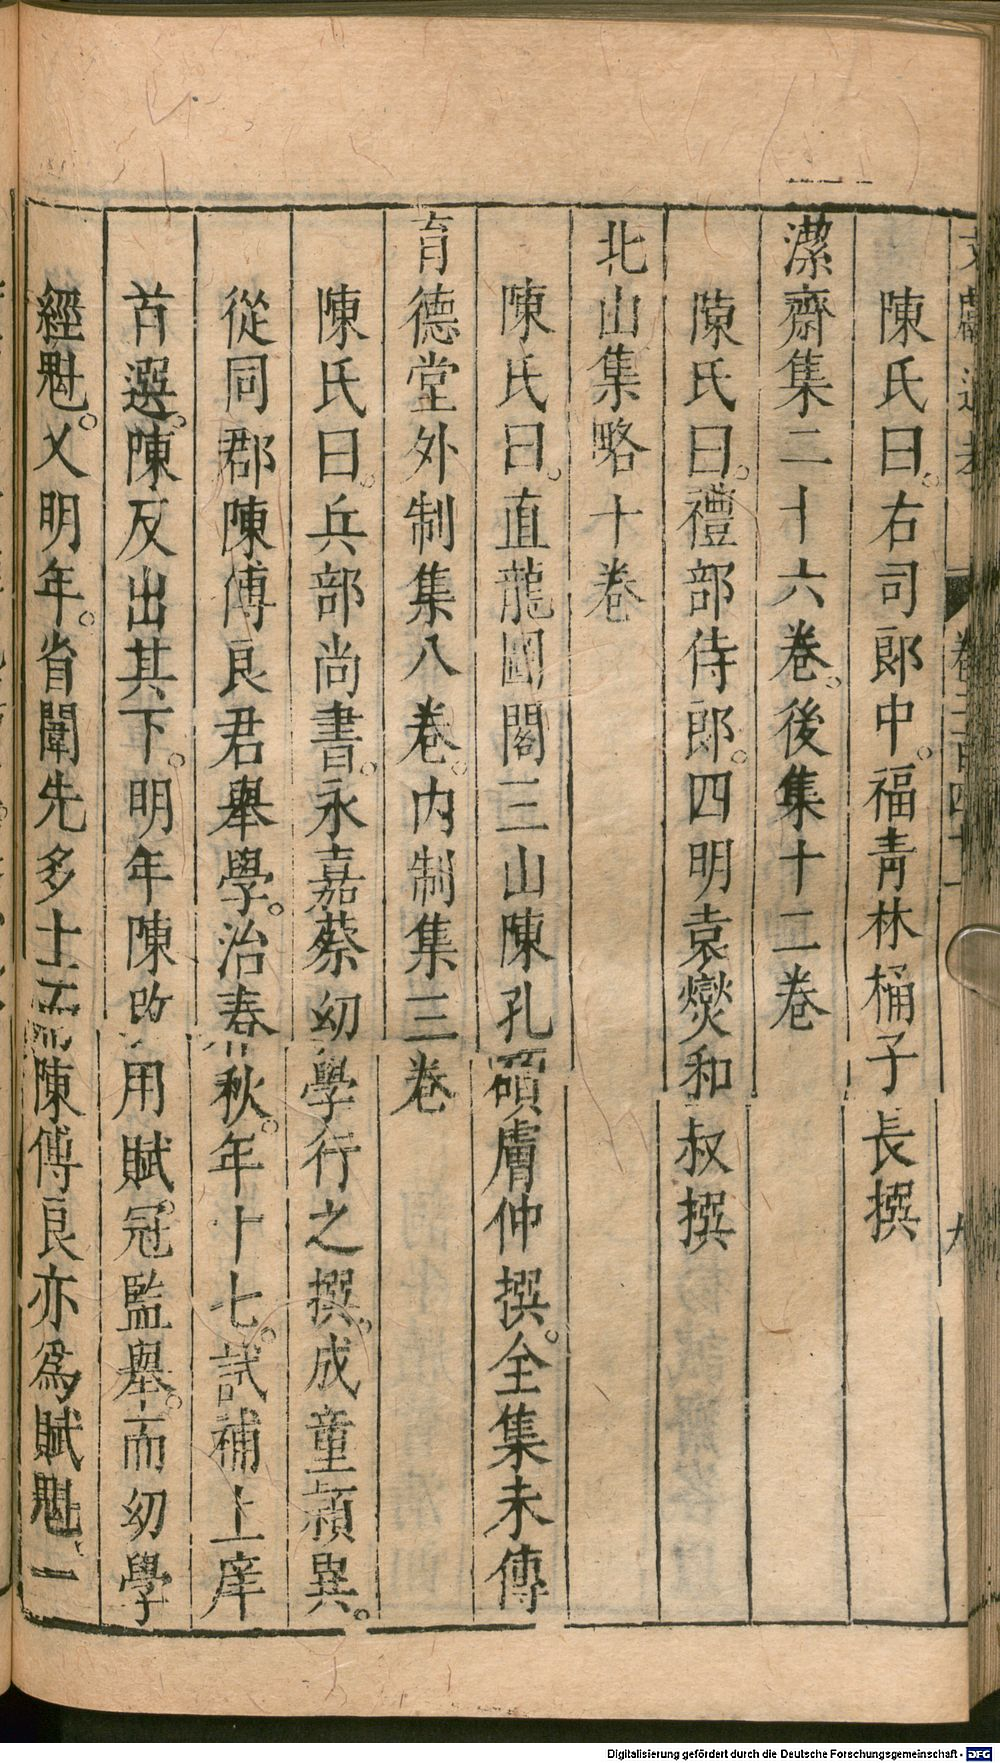 陳氏曰。右司郎中。福青林桶子長撰
潔齋集二十六卷。後集十二卷
陳氏曰。禮部侍郎。四明袁燮和叔撰
北山集略十卷
陳氏曰。直龍圖閣三山陳孔碩膚仲撰。全集未傳
育德堂外制集八卷。內制集三卷
陳氏曰。兵部尚書。永嘉蔡幼學行之撰。成童穎異。
從同郡陳傅良君舉學。治春秋。年十七。試補上庠
首選。陳反出其下。明年陳改用賦。冠監舉。而幼學
經魁。又明年。省闈先多士而陳傅良亦為賦魁。一
卷二百四十一
九
Digitalisierung gefördert durch die Deutsche Forschungsgemeinschaft - DFG